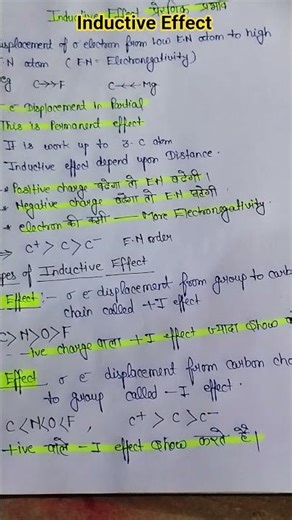 Inductive Effect
Inductive Effect प्रेरणिक प्रभाव
isplacement of σ electron from low E.N atom to high
.N atom (EN = Electronegativity)
eg C→→F C←←Mg
e⁻ Displacement in Partial
This is Permanent effect
It is work up to 3 C atom
Inductive effect depend upon Distance.
* Positive charge बढ़ेगा तो E.N बढ़ेगी।
* Negative charge बढ़ेगा तो E.N घटेगी
* electron की कमी — More Electronegativity.
⇒ C⁺ > C > C⁻ E.N order
ypes of Inductive Effect
Effect :- σ e⁻ displacement from group to carb
chain called +I effect
C>N>O>F
-tive charge वाला +I effect ज्यादा show क
Effect σ e⁻ displacement from carbon cha
to group called -I effect.
C<N<O<F, C⁺ > C > C⁻
+tive वाले -I effect show करते है।